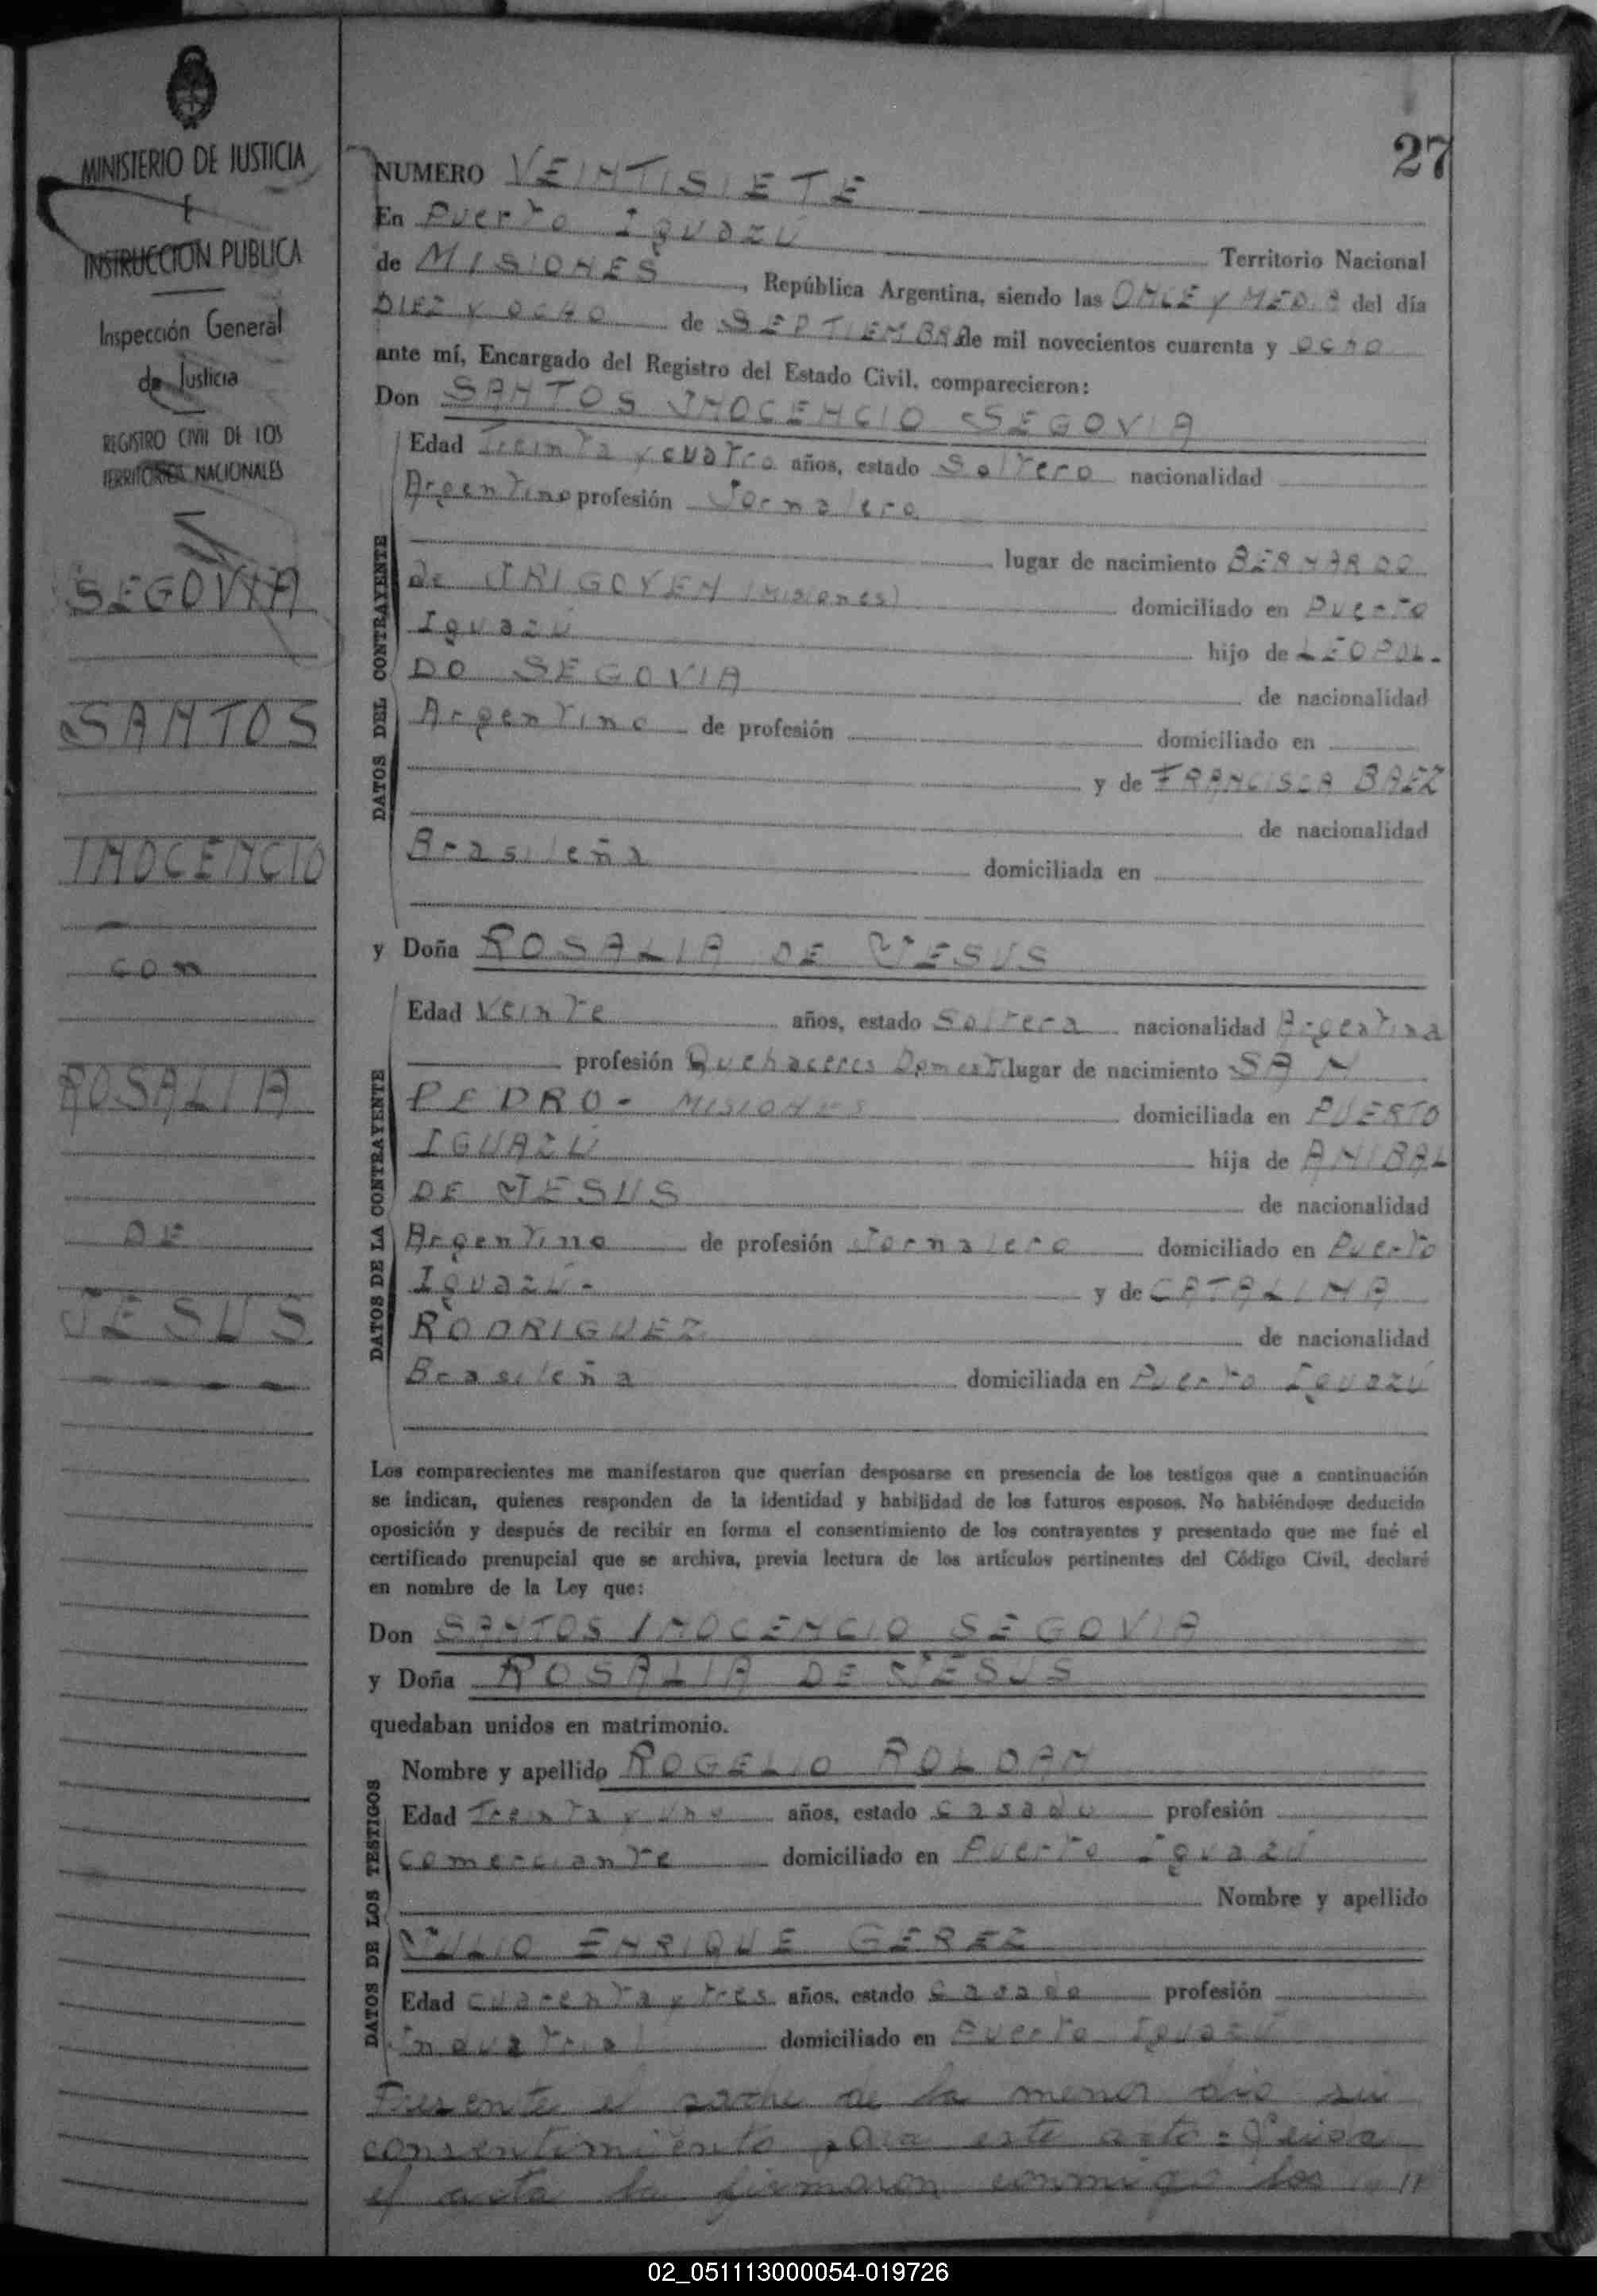 MINISTERIO DE JUSTICIA
E
INSTRUCCION PUBLICA
Inspección General
de Justicia
REGISTRO CIVIL DE LOS
TERRITORIOS NACIONALES
SEGOVIA
SANTOS
INOCENCIO
con
ROSALIA
DE
JESUS
27
NUMERO VEINTISIETE
En Puerto Iguazú Territorio Nacional
de MISIONES, República Argentina, siendo las ONCE y MEDIA del día
DIEZ Y OCHO de SEPTIEMBRE de mil novecientos cuarenta y OCHO
ante mí, Encargado del Registro del Estado Civil, comparecieron:
Don SANTOS INOCENCIO SEGOVIA
Edad Treinta y cuatro años, estado Soltero nacionalidad
Argentino profesión Jornalero
lugar de nacimiento BERNARDO
de IRIGOYEN (Misiones) domiciliado en Puerto
Iguazú hijo de LEOPOL-
DO SEGOVIA de nacionalidad
Argentino de profesión domiciliado en
y de FRANCISCA BAEZ
de nacionalidad
Brasileña domiciliada en
DATOS DEL CONTRAYENTE
y Doña ROSALIA DE JESUS
Edad Veinte años, estado Soltera nacionalidad Argentina
profesión Quehaceres Domest. lugar de nacimiento SAN
PEDRO - MISIONES domiciliada en PUERTO
IGUAZÚ hija de ANIBAL
DE JESUS de nacionalidad
Argentino de profesión Jornalero domiciliado en Puerto
Iguazú- y de CATALINA
RODRIGUEZ de nacionalidad
Brasileña domiciliada en Puerto Iguazú
DATOS DE LA CONTRAYENTE
Los comparecientes me manifestaron que querían desposarse en presencia de los testigos que a continuación
se indican, quienes responden de la identidad y habilidad de los futuros esposos. No habiéndose deducido
oposición y después de recibir en forma el consentimiento de los contrayentes y presentado que me fué el
certificado prenupcial que se archiva, previa lectura de los artículos pertinentes del Código Civil, declaré
en nombre de la Ley que:
Don SANTOS INOCENCIO SEGOVIA
y Doña ROSALIA DE JESUS
quedaban unidos en matrimonio.
Nombre y apellido ROGELIO ROLDAN
Edad Treinta y uno años, estado casado profesión
comerciante domiciliado en Puerto Iguazú
Nombre y apellido
JULIO ENRIQUE GEREZ
Edad cuarenta y tres años, estado Casado profesión
industrial domiciliado en Puerto Iguazú
DATOS DE LOS TESTIGOS
Presente el padre de la menor dio su
consentimiento para este acto = Leida
el acta la firmaron conmigo los
02_051113000054-019726